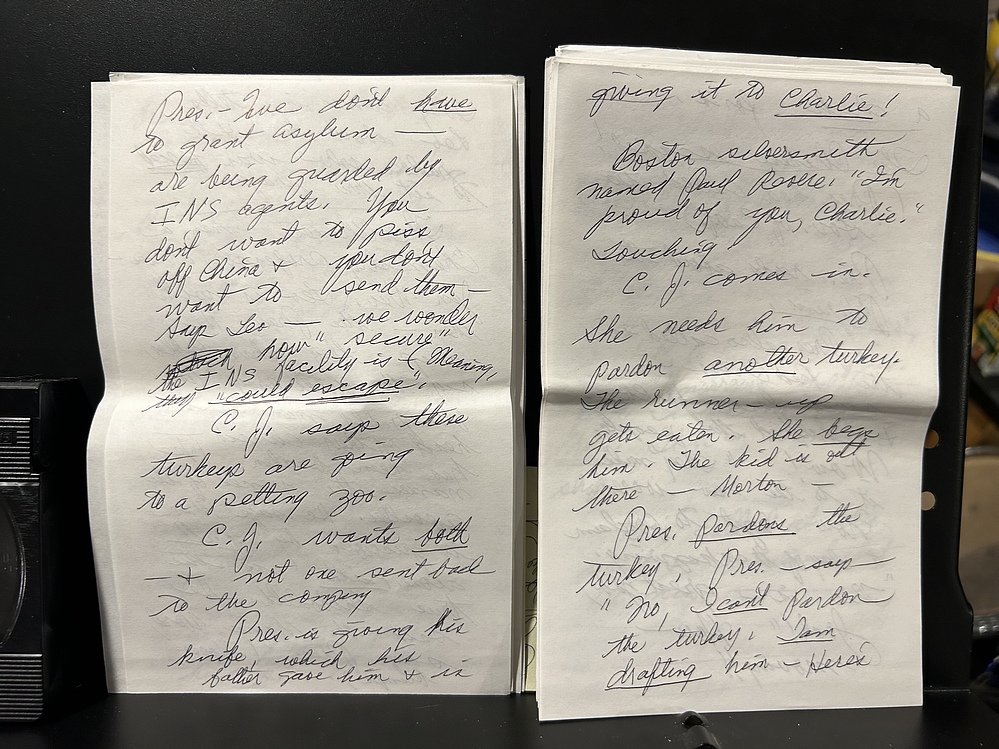 Pres. - "We don't have
to grant asylum —
are being guarded by
INS agents. You
don't want to piss
off China & you don't
want to send them —
Says Leo — we wonder
how "secure"
the INS facility is - (Meaning,
they "could escape".
C. J. says these
turkeys are going
to a petting zoo.
C. J. wants both
— & not one sent back
to the company
Pres. is giving his
knife, which his
father gave him & is
giving it to Charlie!
Boston silversmith
named Paul Revere. "I'm
proud of you, Charlie."
Touching
C. J. comes in.
She needs him to
pardon another turkey.
The runner-up
gets eaten. She begs
him. The kid is out
there — Morton —
Pres. pardons the
turkey. Pres. — says
"No, I can't pardon
the turkey. I am
drafting him — Here's